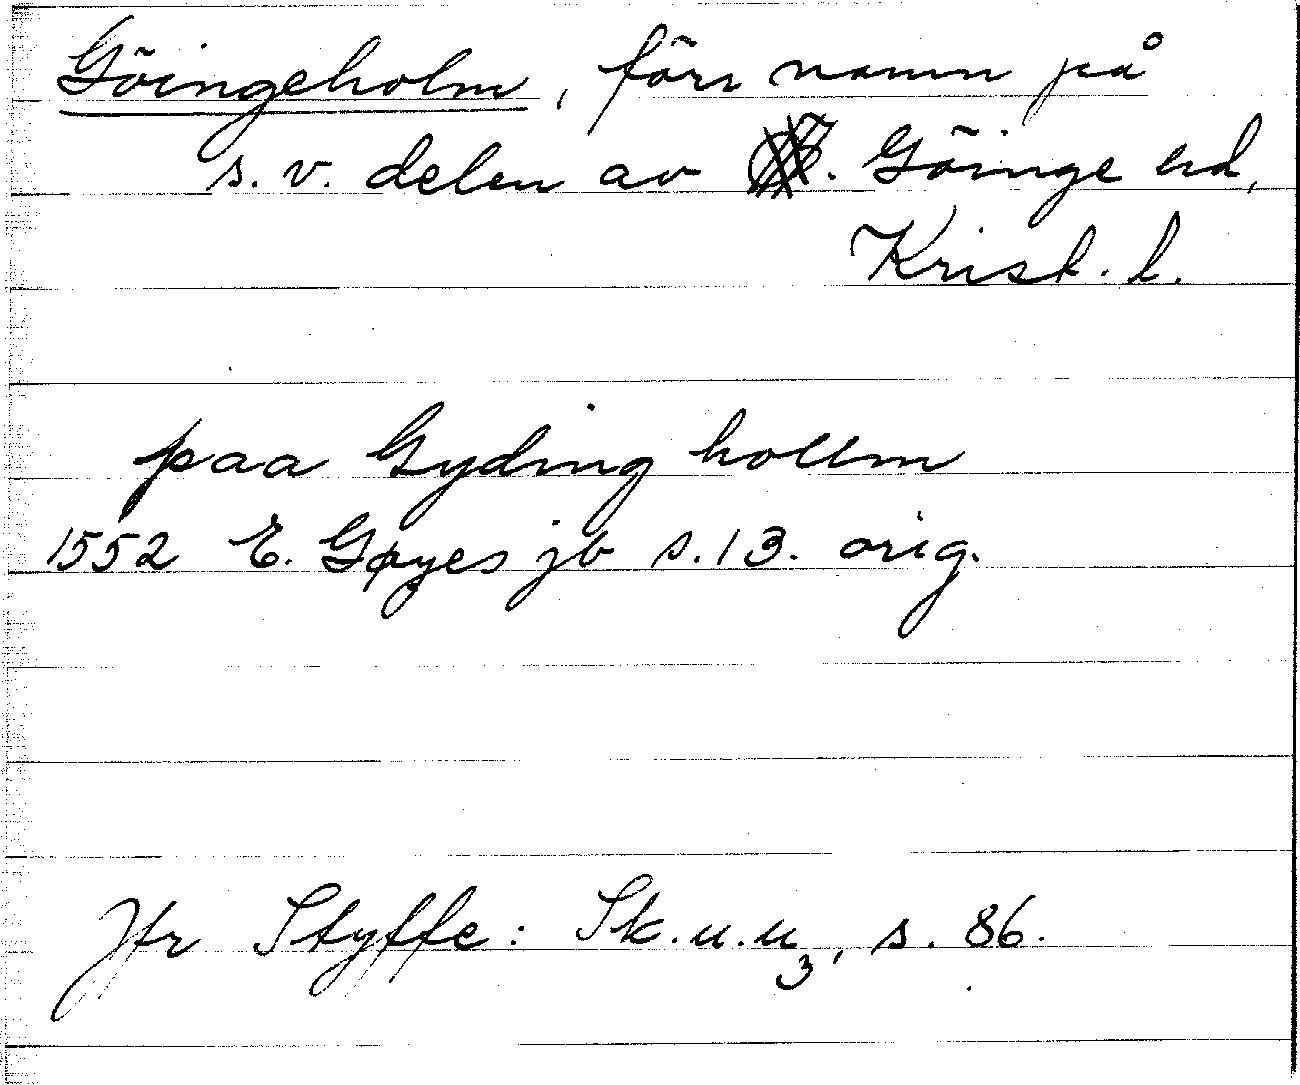 Göingeholm, förr namn på
s. v. delen av . Göinge hd,
Krist. l.
paa Gyding hollm
1552 E. Gøyes jb s. 13. orig.
Jfr Styffe: Sk. u. u3, s. 86.